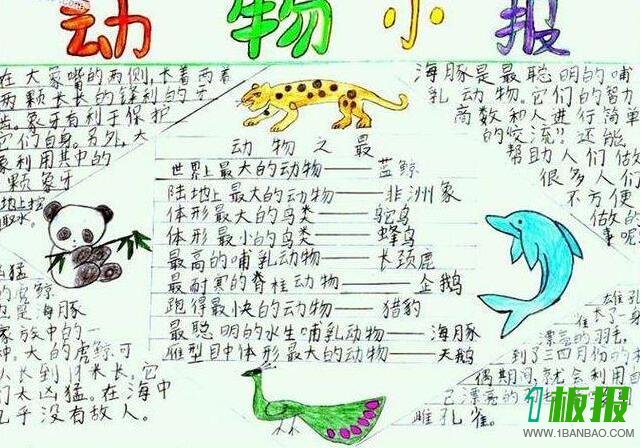 动物小报
在大象嘴的两侧,长着两
两颗长长的锋利的
齿。象牙有利于保护
它们自身。另外,大
象利用其中的
颗象牙
动物之最
世界上最大的动物——蓝鲸
陆地上最大的动物——非洲象
体形最大的鸟类——鸵鸟
体形最小的鸟类——蜂鸟
最高的哺乳动物——长颈鹿
最耐寒的脊柱动物——企鹅
跑得最快的动物——猎豹
最聪明的水生哺乳动物——海豚
雁型目中体形最大的动物——天鹅
海豚是最聪明的哺
乳动物。它们的智力
商数和人进行简单
的交流??还能
帮助人们做
很多人们
不方便
做的
事呢
凶猛
的虎鲸
也是海豚
家族中的一
种。大的虎鲸可
以长到
们太凶猛。在海中
几乎没有敌人。
雄孔
长了一身
漂亮的羽毛。
到了三四月份的
偶期间,就会利用自
己漂亮的
雌孔雀。
1板报
WWW.1BANBAO.COM